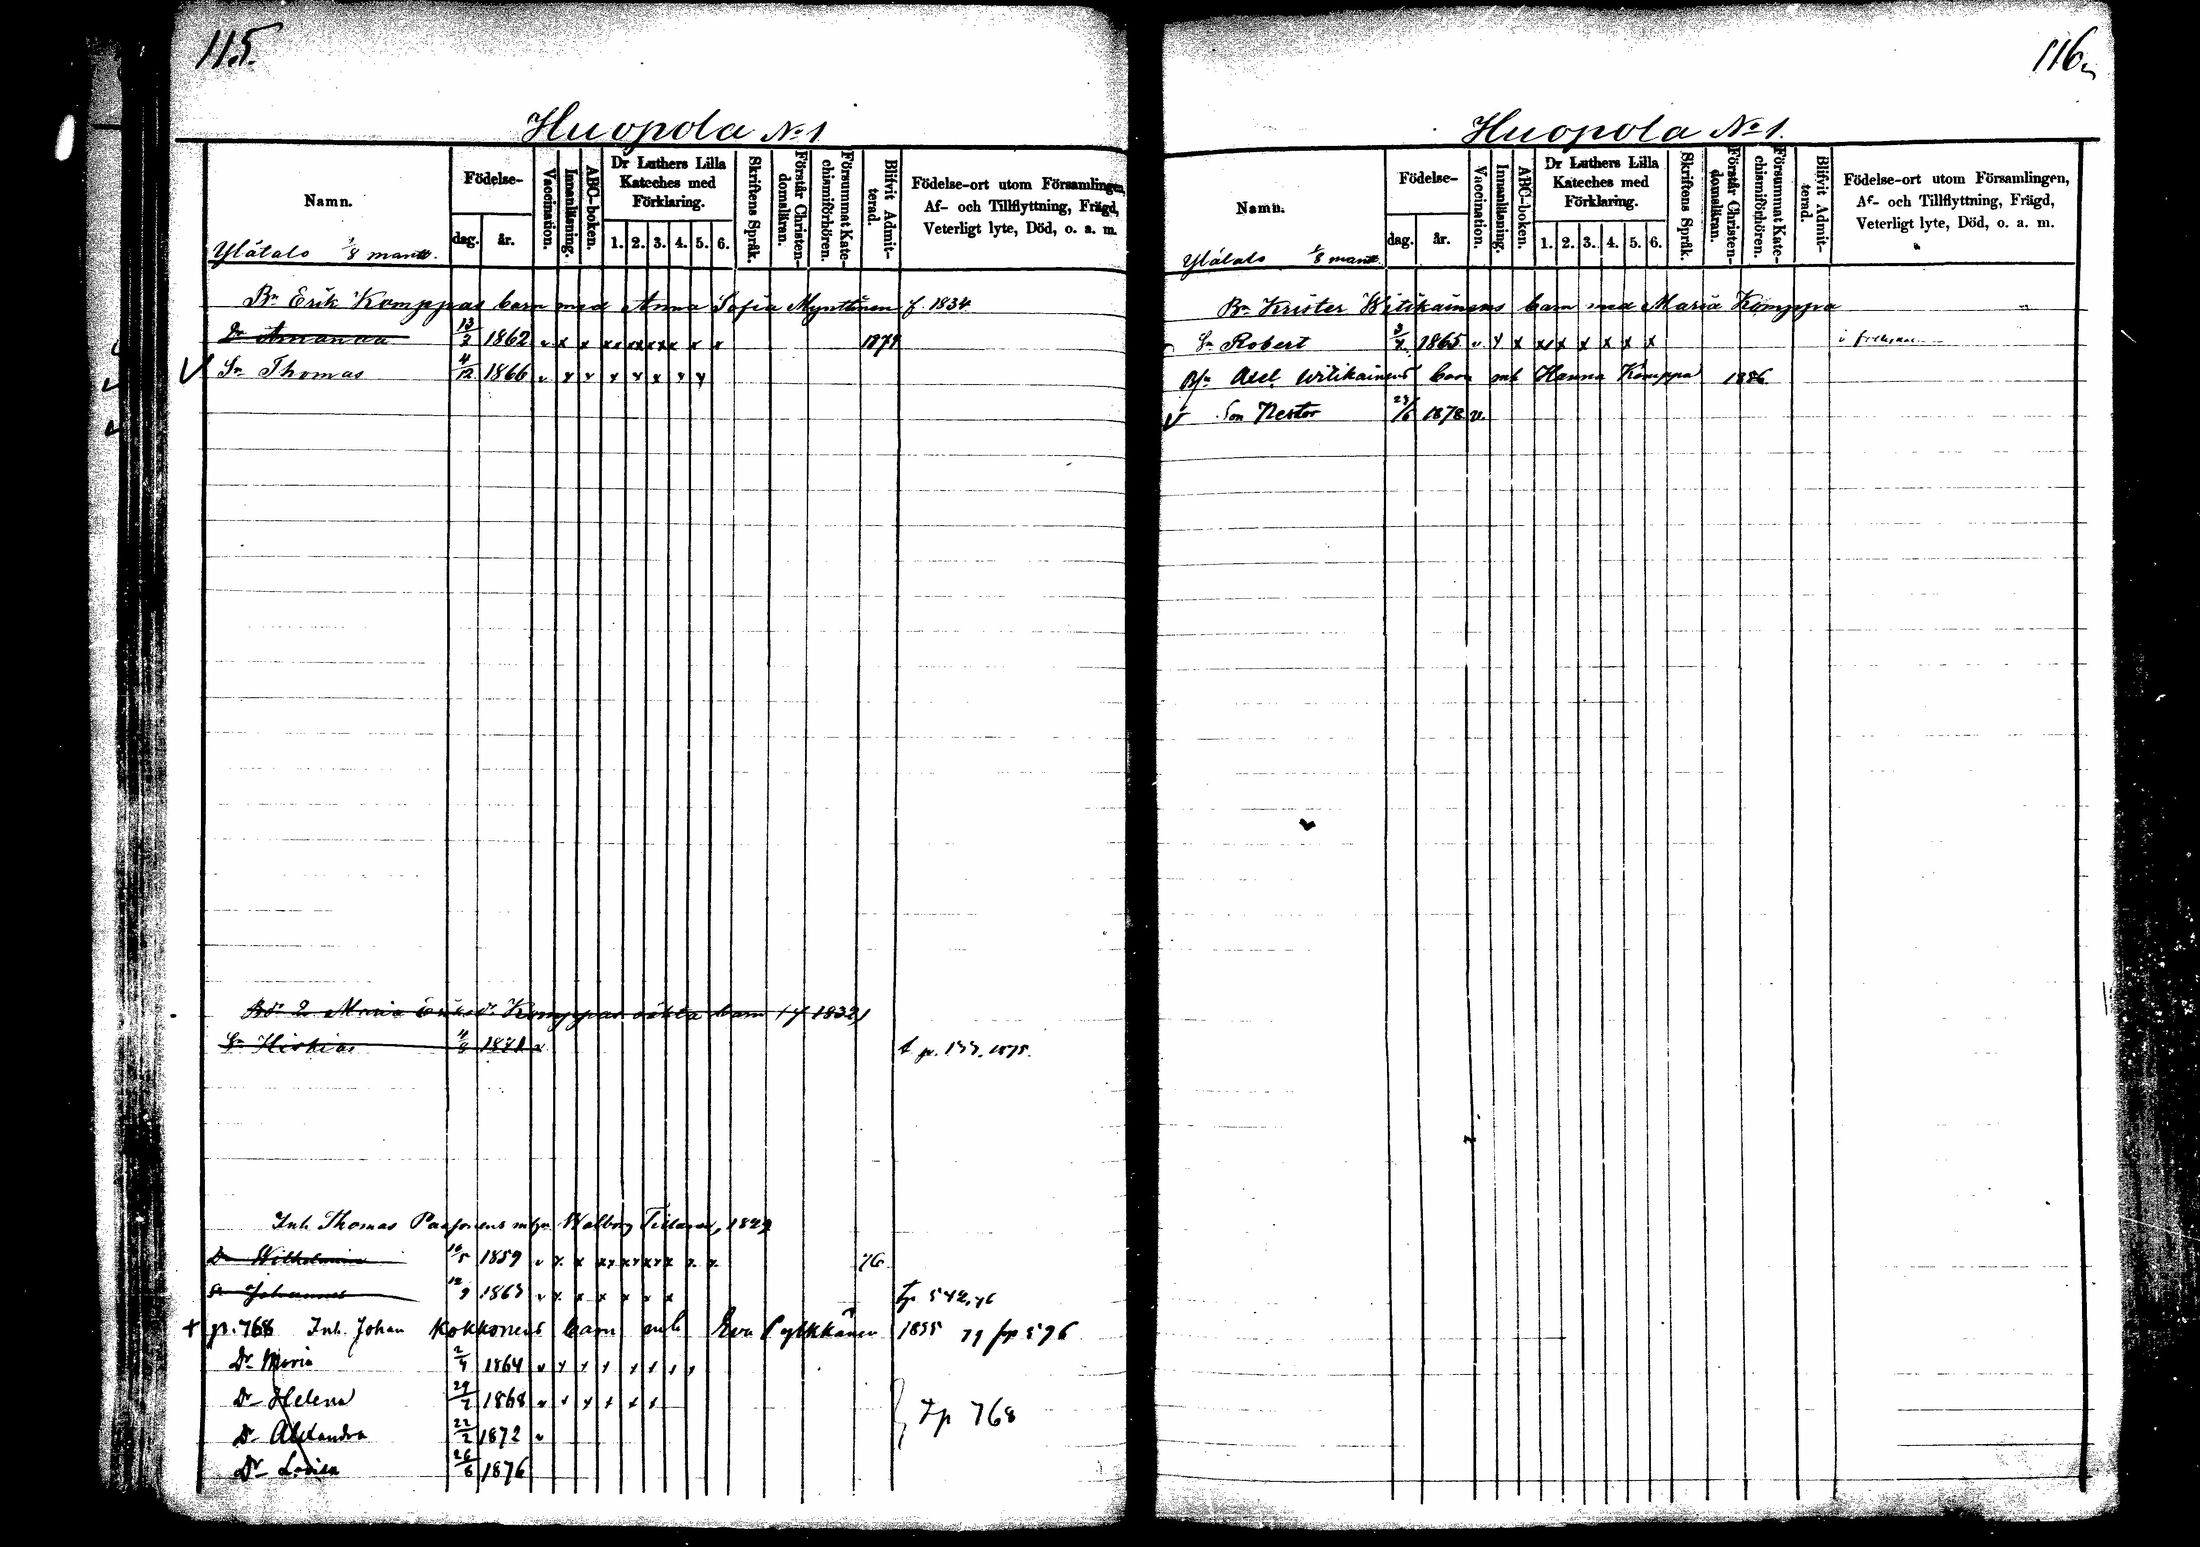 115.
Huopola No 1
Namn.
Födelse-
dag.
år.
Vaccination.
Innanläsning.
ABC-boken.
Dr Luthers Lilla
Kateches med
Förklaring.
1. 2. 3. 4. 5. 6.
Skriftens Språk.
Förstår Christen-
domsläran.
Försummat Kate-
chismiförhören.
Blifvit Admit-
terad.
Födelse-ort utom Församlingen,
Af- och Tillflyttning, Frägd,
Veterligt lyte, Död, o. a. m.
Ylätalo 1/8 mantl.
Bn Erik Komppas barn med Anna Sofia Mynttinen f. 1834
Dr Amanda 13/3 1862 v x x xx xx xx x x x 1879
Sn Thomas 4/12 1866 v x x x x x x x
Bdr 2 Maria Eriksdr Komppas oäkta barn (f 1832)
Sn Hiskias 4/8 1871 v t p. 133. 1875.
Inh. Thomas Paasonens m hu Walborg 1829
Dr Wilhelmina 16/5 1859 v x x xx xx xx x x x 76
Sn Johannes 12/9 1863 v x x x x x x tp 542, 76
+ p. 768 Inh. Johan Kokkonens barn mb Eva Pylkkänen 1835 79 fr p 596
Dr Maria 2/4 1864 v x x x x x x x
Dr Helena 29/7 1868 v x x x x x
Dr Alexandra 22/2 1872 v
Dr Lovisa 26/8 1876
Tp 768
116.
Huopola No 1.
Namn.
Födelse-
dag.
år.
Vaccination.
Innanläsning.
ABC-boken.
Dr Luthers Lilla
Kateches med
Förklaring.
1. 2. 3. 4. 5. 6.
Skriftens Språk.
Förstår Christen-
domsläran.
Försummat Kate-
chismiförhören.
Blifvit Admit-
terad.
Födelse-ort utom Församlingen,
Af- och Tillflyttning, Frägd,
Veterligt lyte, Död, o. a. m.
Ylätalo 1/8 mantl.
Bn Krister Witikainens barn med Maria Komppa
Sn Robert 1865 v x x xx x x x x x
Axel Witikainens barn mb Hanna Komppa 1886
Son Nestor 29/6 1878 v.